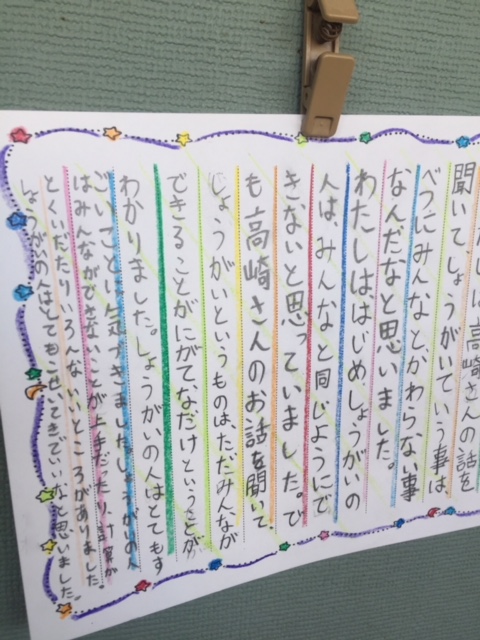 たしは高崎さんの話を
聞いて、しょうがいていう事は
べつにみんなとかわらない事
なんだなと思いました。
わたしははじめしょうがいの
人は、みんなと同じようにで
きないと思っていました。で
も高崎さんのお話を聞いて、
しょうがいというものは、ただみんなが
できることがにがてなだけということが
わかりました。しょうがいの人はとてもす
ごいことに気づきました。しょうがいの人
はみんなができないことが上手だったり計算が
とくいだったりいろんないいところがありました。
しょうがいの人はとてもこせいてきでいいなと思いました。